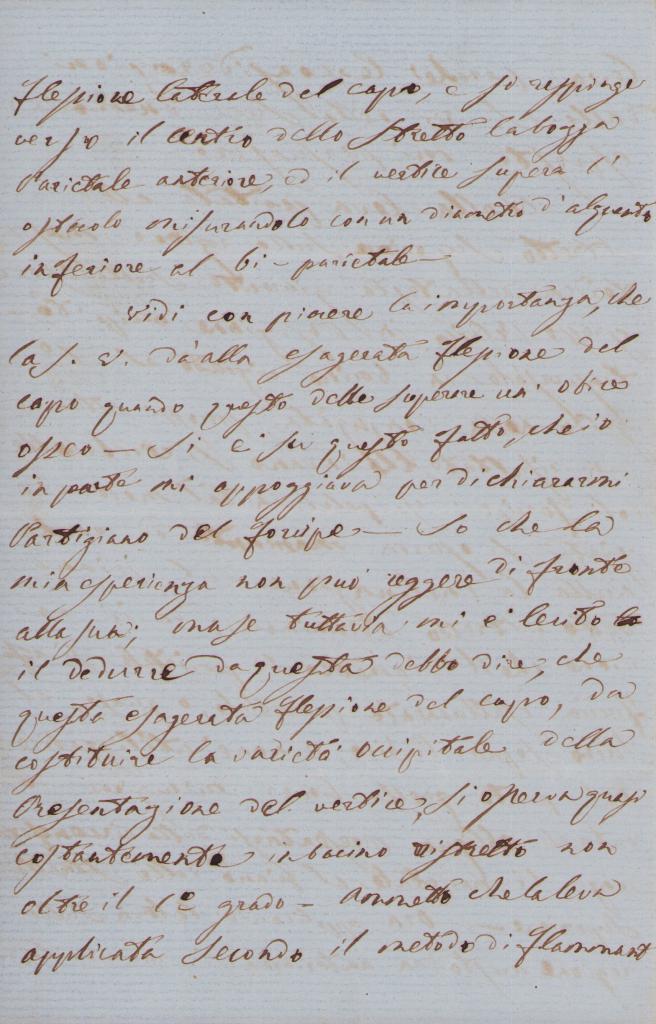 flessione laterale del capo, e si respinge
verso il centro dello stretto la bozza
Parietale anteriore, ed il vertice supera l'
ostacolo misurandolo con un diametro d'alquanto
inferiore al bi-parietale—
Vidi con piacere la importanza, che
la S. V. dà alla esagerata flessione del
capo quando questo delle superare un' obice
osseo— Si è su questo fatto, che io
in parte mi appoggiava per dichiararmi
Partigiano del forcipe— So che la
mia esperienza non può reggere di fronte
alla sua; ma se tuttavia mi è lecito
il dedurre da questa debbo dire, che
questa esagerata flessione del capo, da
costituire la varietà occipitale della
Presentazione del vertice, si osserva quasi
costantemente in bacino ristretto non
oltre il 1º grado— Ammetto che la leva
applicata secondo il metodo di Flammant